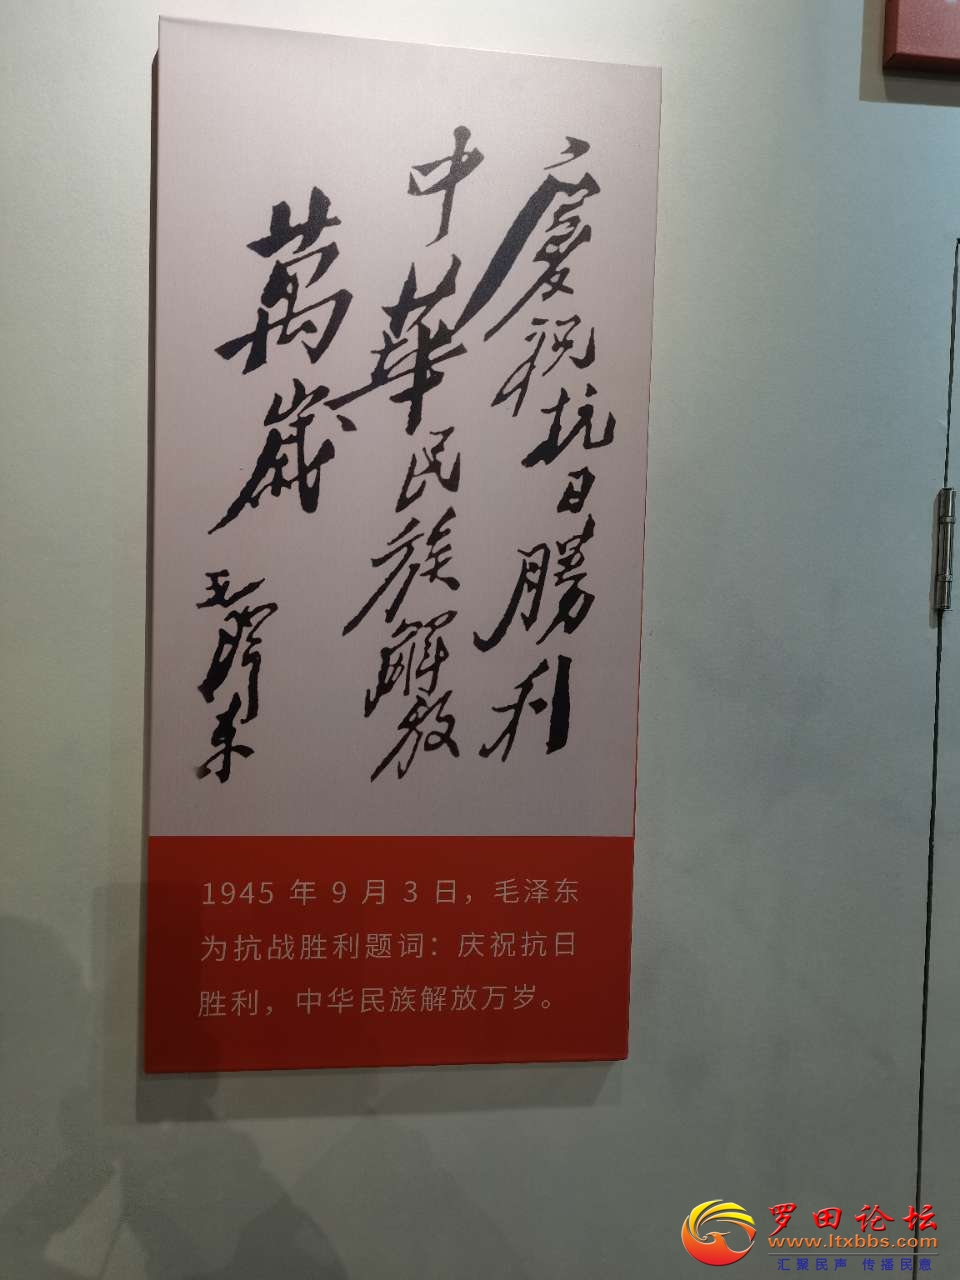 慶祝抗日勝利
中華民族解放
萬歲
毛澤东
1945 年 9 月 3 日，毛泽东
为抗战胜利题词：庆祝抗日
胜利，中华民族解放万岁。
罗田论坛
www.ltxbbs.com
汇聚民声 传播民意